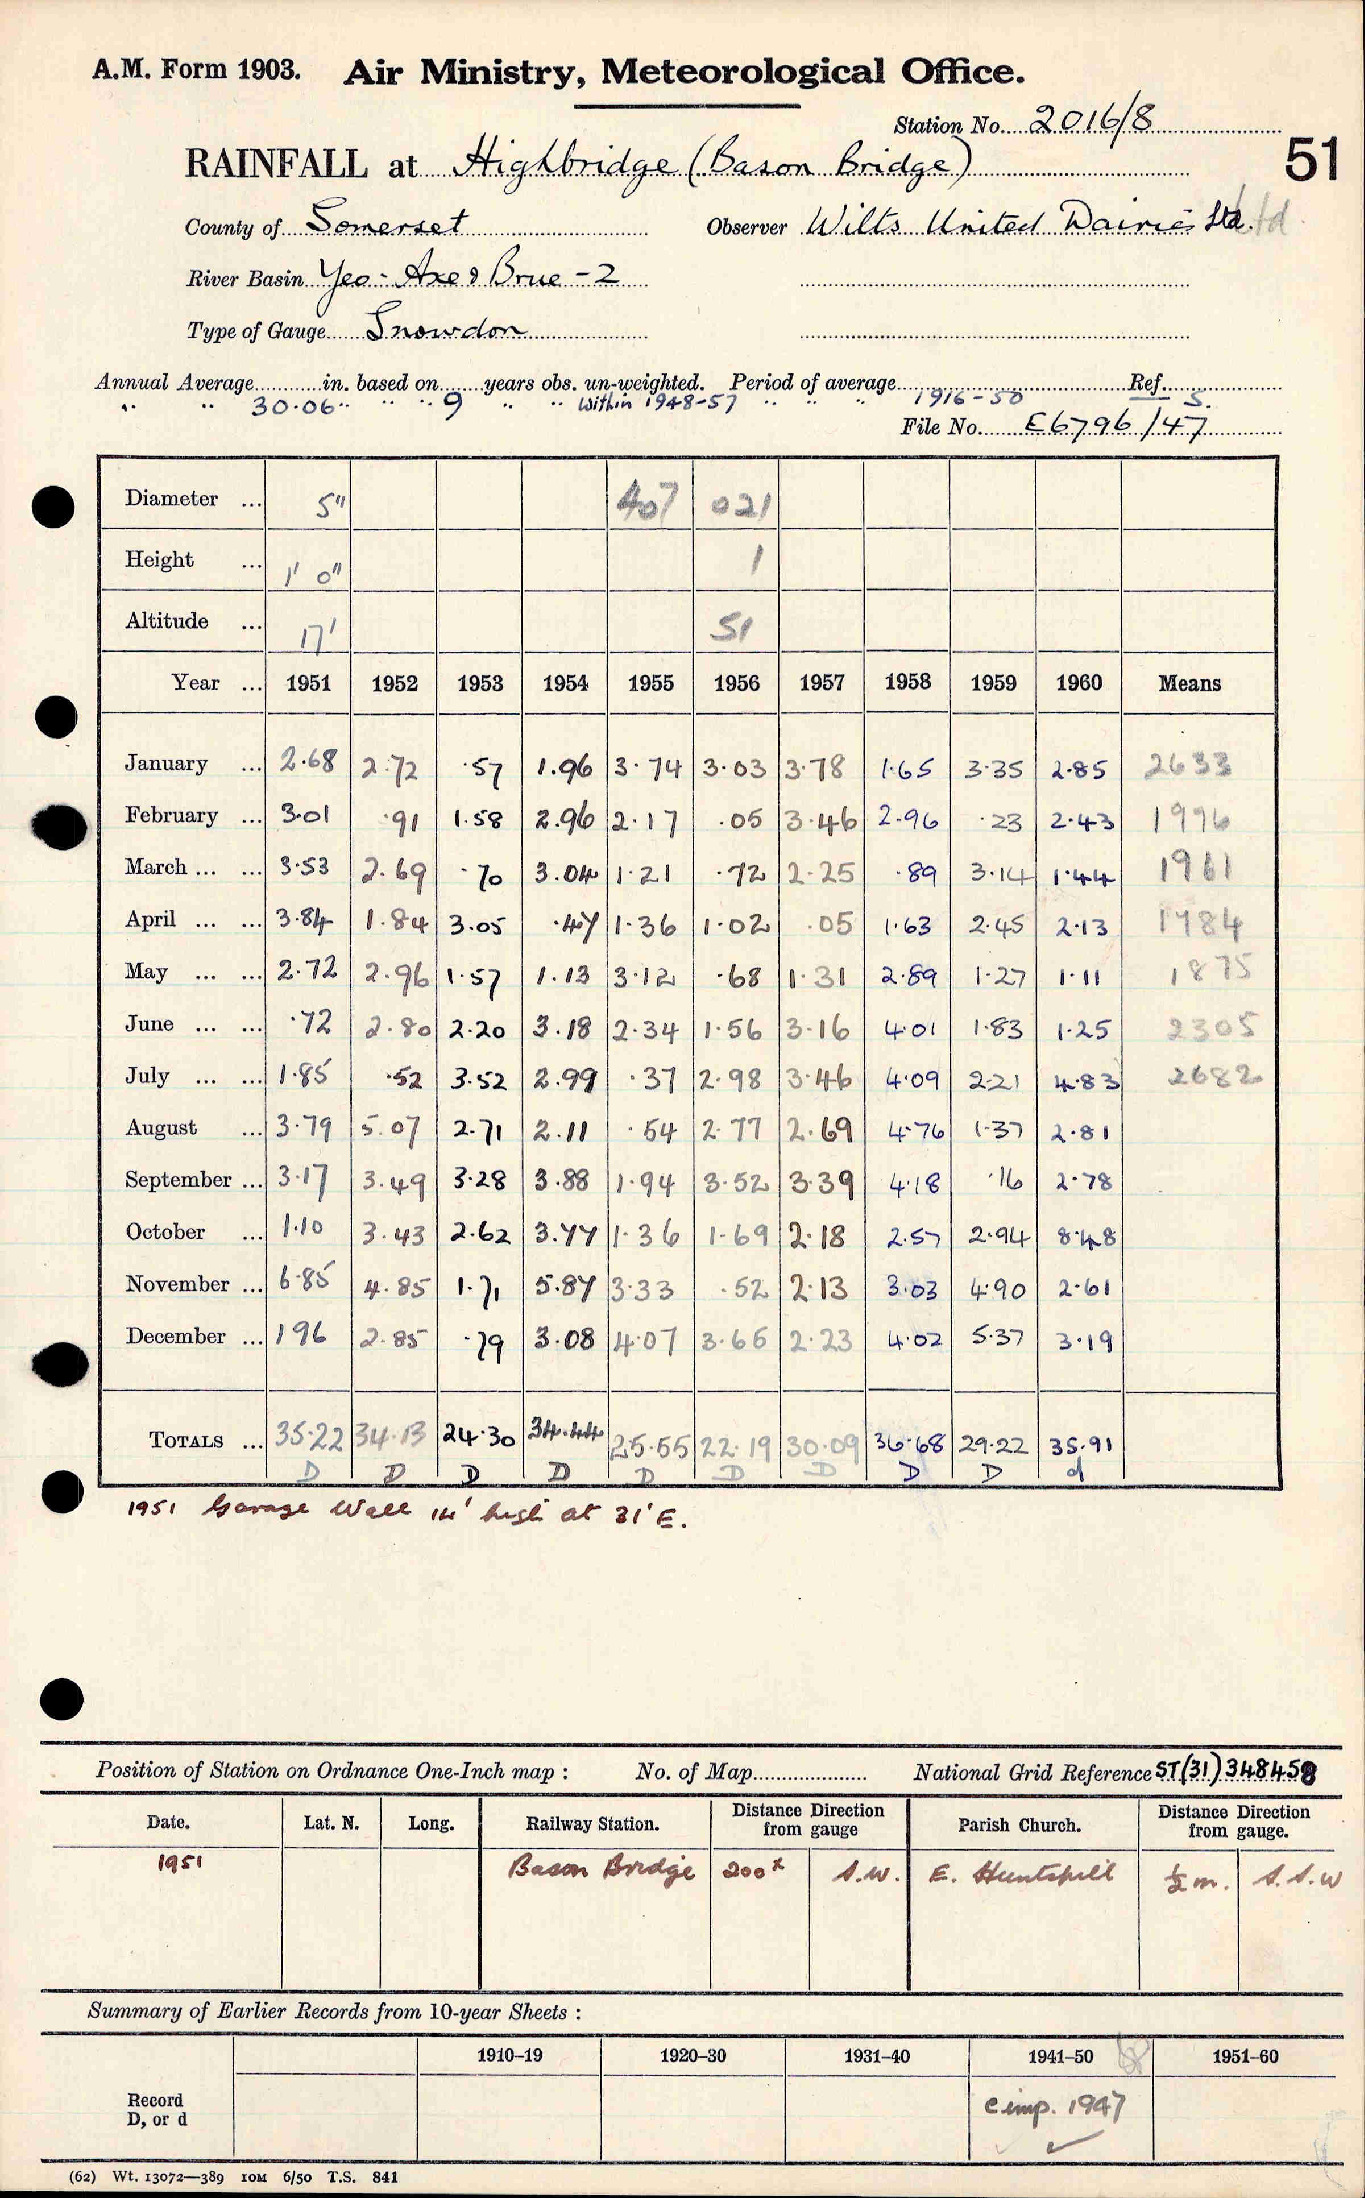 A.M. Form 1903. Air Ministry, Meteorological Office.
Station No. 2016/8
RAINFALL at Highbridge (Bason Bridge)
51
County of Somerset Observer Wilts United Dairies Ltd. Ltd
River Basin Yeo - Axe & Brue - 2
Type of Gauge Snowdon
Annual Average in. based on years obs. un-weighted. Period of average Ref.
" " 30.06 " " " 9 " " within 1948-57 " " " 1916-50 S.
File No. E6796/47
Diameter ... 5" 407 021
Height ... 1' 0" 1
Altitude ... 17' 51
Year ... 1951 1952 1953 1954 1955 1956 1957 1958 1959 1960 Means
January ... 2.68 2.72 .57 1.96 3.74 3.03 3.78 1.65 3.35 2.85 2633
February ... 3.01 .91 1.58 2.96 2.17 .05 3.46 2.96 .23 2.43 1976
March ... ... 3.53 2.69 .70 3.04 1.21 .72 2.25 .89 3.14 1.44 1961
April ... ... 3.84 1.84 3.05 .47 1.36 1.02 .05 1.63 2.45 2.13 1784
May ... ... 2.72 2.96 1.57 1.13 3.12 .68 1.31 2.89 1.27 1.11 1875
June ... ... .72 2.80 2.20 3.18 2.34 1.56 3.16 4.01 1.83 1.25 2305
July ... ... 1.85 .52 3.52 2.99 .37 2.98 3.46 4.09 2.21 4.83 2682
August ... 3.79 5.07 2.71 2.11 .54 2.77 2.69 4.76 1.37 2.81
September ... 3.17 3.49 3.28 3.88 1.94 3.52 3.39 4.18 .16 2.78
October ... 1.10 3.43 2.62 3.77 1.36 1.69 2.18 2.57 2.94 8.48
November ... 6.85 4.85 1.71 5.87 3.33 .52 2.13 3.03 4.90 2.61
December ... 1 96 2.85 .79 3.08 4.07 3.65 2.23 4.02 5.37 3.19
TOTALS ... 35.22 34.13 24.30 34.44 25.55 22.19 30.09 36.68 29.22 35.91
D D D D D D D D D d
1951 Garage Wall 14' high at 31' E.
Position of Station on Ordnance One-Inch map : No. of Map National Grid Reference ST(31)348458
Date. Lat. N. Long. Railway Station. Distance Direction from gauge Parish Church. Distance Direction from gauge.
1951 Bason Bridge 200x S.W. E. Huntspill ½ m. S.S.W
Summary of Earlier Records from 10-year Sheets :
1910–19 1920–30 1931–40 1941–50 1951–60
Record
D, or d
c imp. 1947
(62) Wt. 13072—389 10M 6/50 T.S. 841